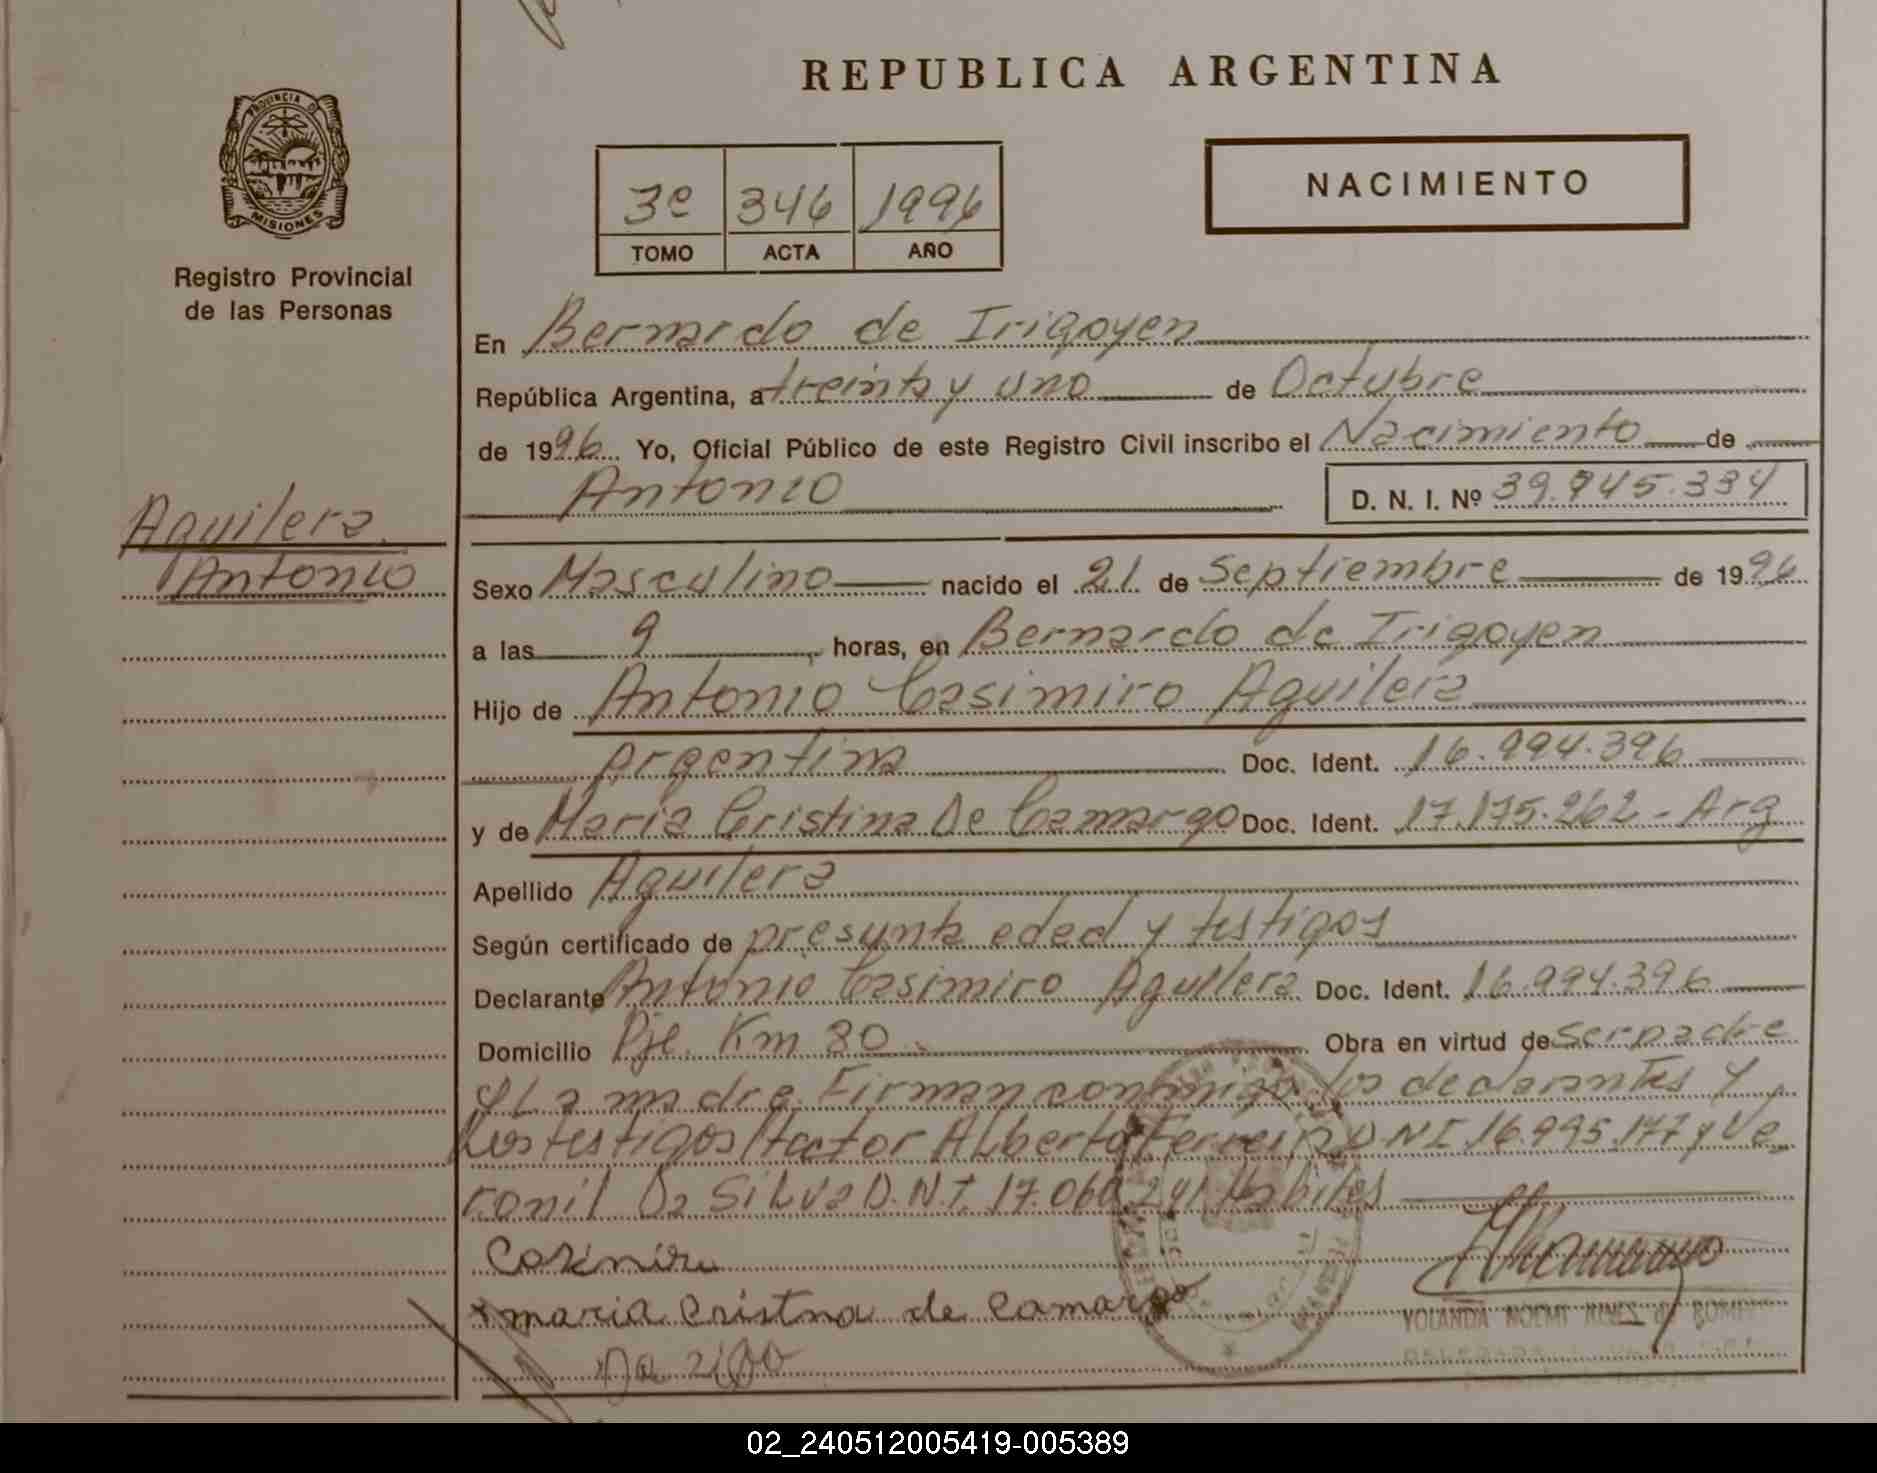 REPUBLICA ARGENTINA
PROVINCIA D
MISIONES
Registro Provincial
de las Personas
3º 346 1996
TOMO ACTA AÑO
NACIMIENTO
En Bernardo de Irigoyen
República Argentina, a treinta y uno de Octubre
de 1996 Yo, Oficial Público de este Registro Civil inscribo el Nacimiento de
Antonio D. N. I. Nº 39.945.334
Aguilera
Antonio
Sexo Masculino nacido el 21 de Septiembre de 1996
a las 9 horas, en Bernardo de Irigoyen
Hijo de Antonio Casimiro Aguilera
Argentina Doc. Ident. 16.994.396
y de Maria Cristina De Camargo Doc. Ident. 17.175.262 - Arg
Apellido Aguilera
Según certificado de presunta edad y testigos
Declarante Antonio Casimiro Aguilera Doc. Ident. 16.994.396
Domicilio Pje. Km 80 Obra en virtud de ser padre
y La madre. Firman conmigo los declarantes y
Los testigos Alberto Ferreira DNI 16.995.177 y Ve
ronil Da Silva D.N.I. 17.060.241 Habiles
maria cristna de camargo
YOLANDA NOEMI
02_240512005419-005389